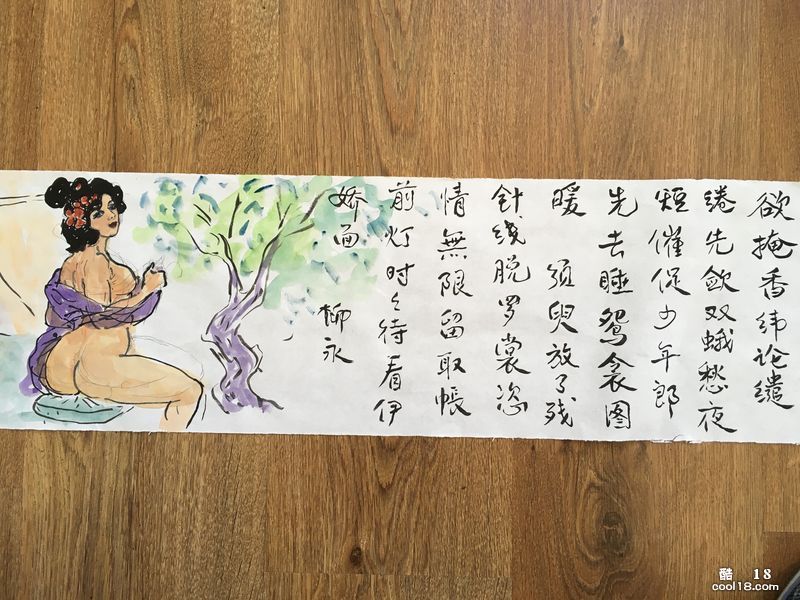 欲掩香帏论缱
绻先敛双蛾愁夜
短催促少年郎
先去睡鸳衾图
暖 须臾放了残
针线脱罗裳恣
情無限留取帳
前灯时々待看伊
娇面
柳永
酷 18
cool18.com